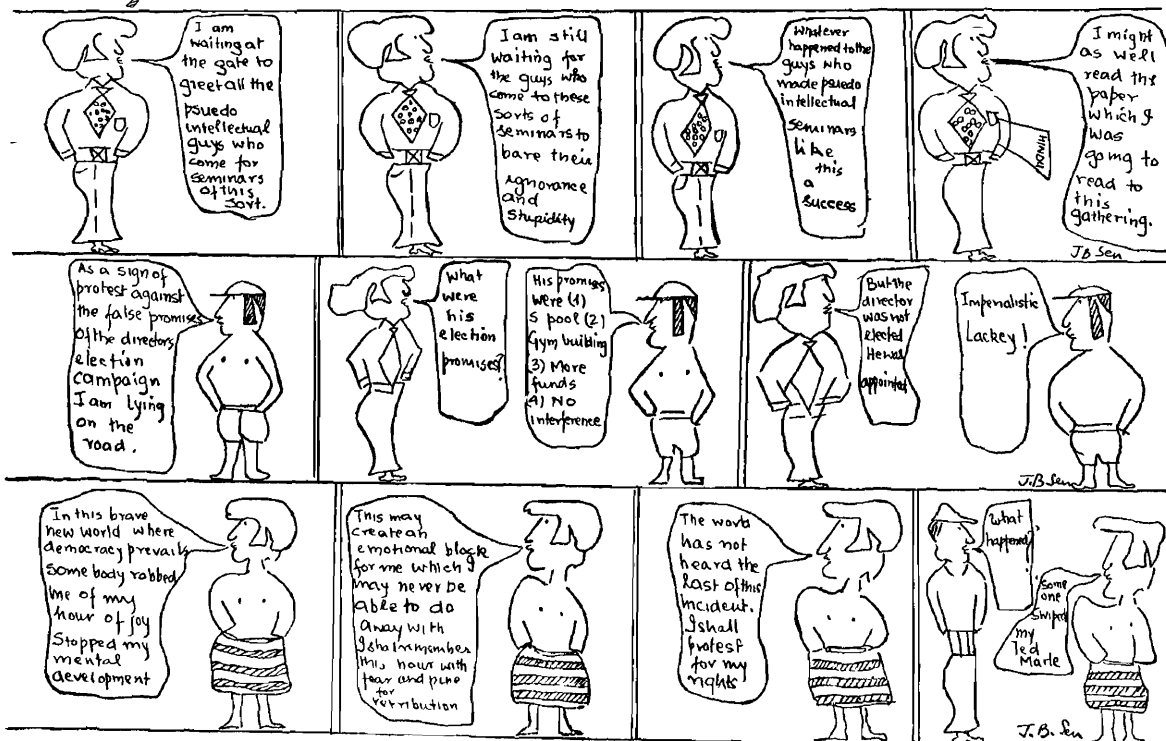 I am
waiting at
the gate to
greet all the
psuedo
intellectual
guys who
come for
seminars
of this
sort.
I am still
waiting for
the guys who
come to these
sorts of
seminars to
bare their
ignorance
and
stupidity
Whatever
happened to the
guys who
made psuedo
intellectual
seminars
like
this
a
success
I might
as well
read the
paper
which I
was
going to
read to
this
gathering.
HINDU
J.B Sen
As a sign of
protest against
the false promises
of the directors
election
campaign
I am lying
on the
road.
What
were
his
election
promises?
His promises
were (1)
S pool (2)
Gym building
(3) More
funds
(4) No
interference
But the
director
was not
elected
He was
appointed
Imperialistic
Lackey!
J.B Sen
In this brave
new world where
democracy prevails
some body robbed
me of my
hour of joy
Stopped my
mental
development
This may
create an
emotional block
for me which I
may never be
able to do
away with
I shall remember
this hour with
fear and pine
for
retribution
The world
has not
heard the
last of this
incident.
I shall
protest
for my
rights
What
happened?
Some
one
swiped
my
Ted
Marle
J.B. Sen